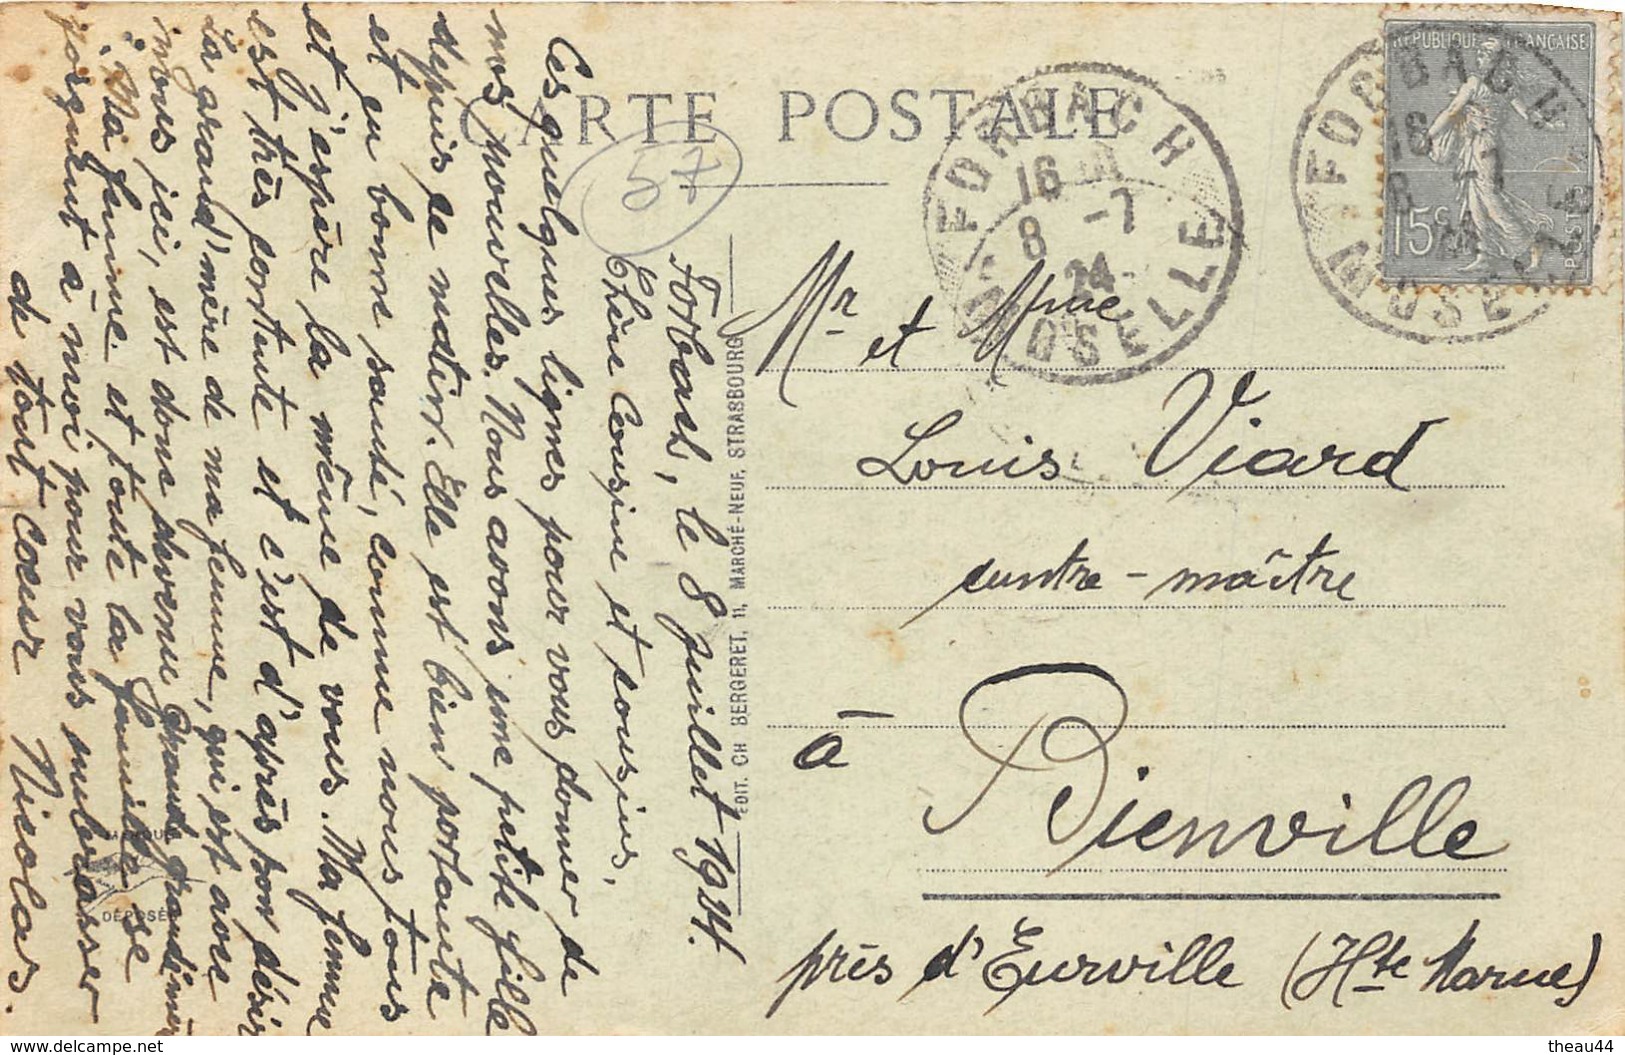 CARTE POSTALE
57
FORBACH
16
8 -7
24
MOSELLE
FORBACH
16
8 -7
24
MOSELLE
REPUBLIQUE FRANÇAISE
15c
POSTES
Forbach, le 8 juillet 1924.
Chère Cousine et cousins,
Ces quelques lignes pour vous donner de
nos nouvelles. Nous avons une petite fille
depuis ce matin. Elle est bien portante
et en bonne santé, comme nous tous
et j'espère la même de vous. Ma femme
est très contente et c'est d'après son désir
La grand'mère de ma femme, qui est avec
nous ici, est donc devenue grande grandmère
Ma femme et toute la famille se
joignent à moi pour vous embrasser
de tout coeur Nicolas.
MARQUE
DÉPOSÉE
EDIT. CH BERGERET, 11, MARCHÉ-NEUF, STRASBOURG
Mr et Mme
Louis Viard
contre-maître
à Bienville
près d'Eurville (Hte Marne)
delcampe.net
theau44